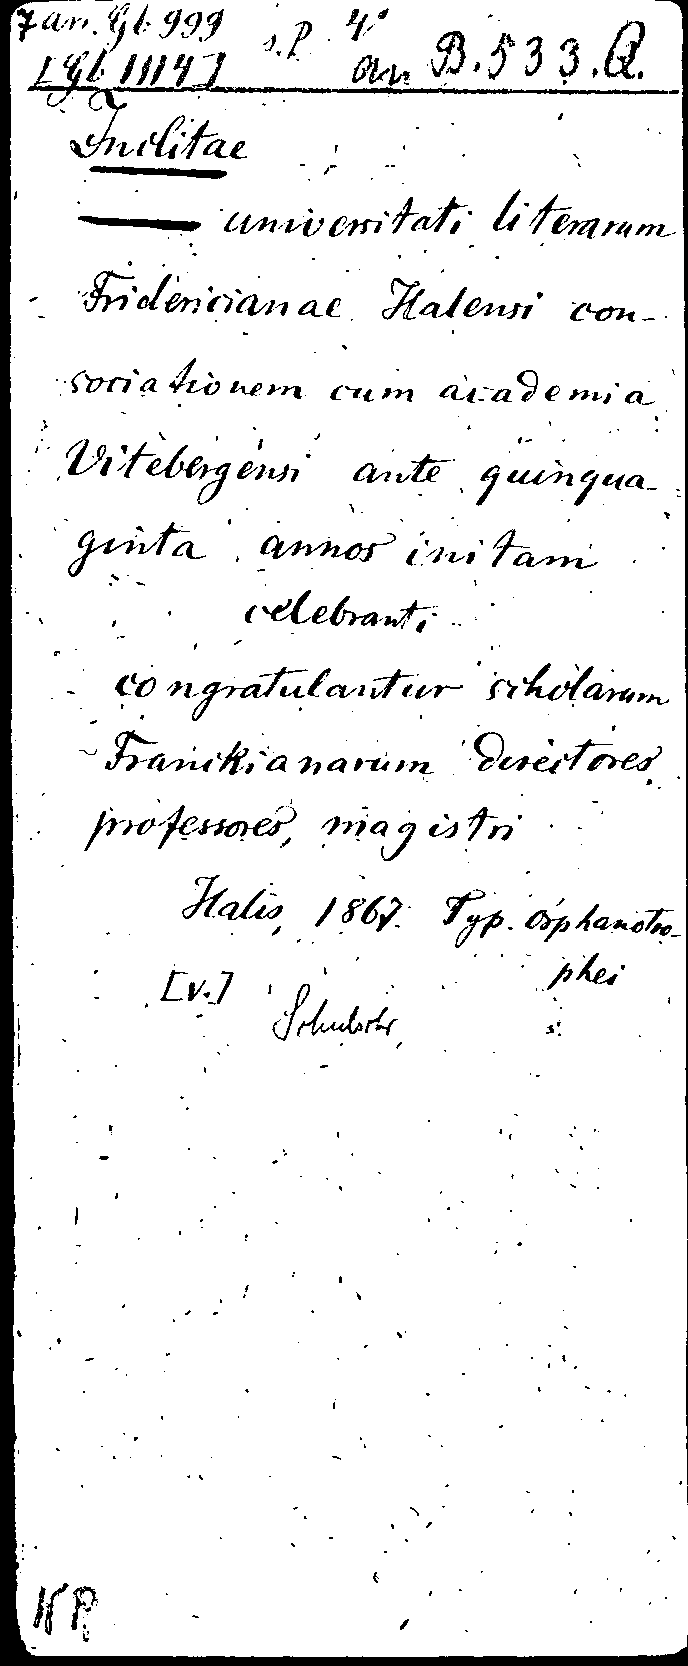 7 an. Gb 999 s.P. 4°
[Gb 1114] an B.533.Q.
Inclitae
— universitati literarum
Fridericianae Halensi con-
sociationem cum academia
Vitebergensi ante quinqua-
ginta annos initam
celebranti
congratulantur scholarum
Franckianarum directores,
professores, magistri
Halis, 1867. Typ. orphanotro-
phei
[v.] s.